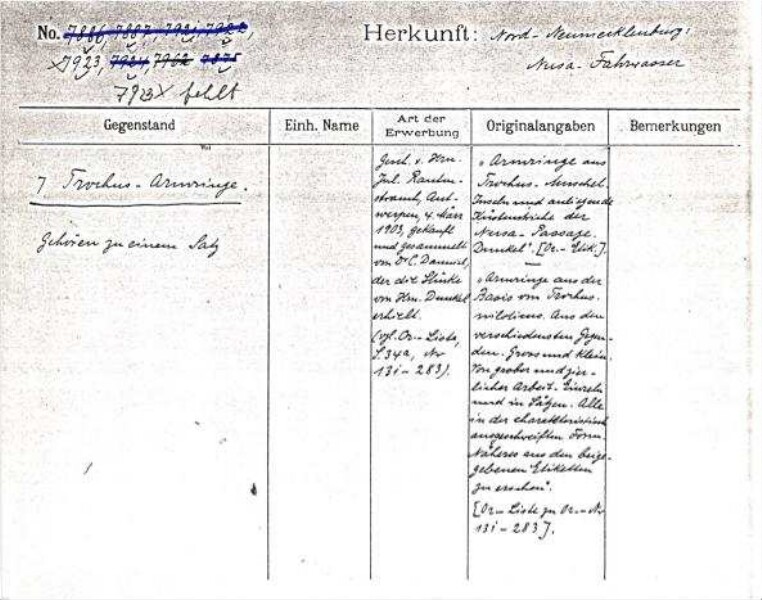 No. 7886, 7887, 7921, 7922,
×7923, 7924, 7962 7875
7923 × fehlt
Herkunft: Nord-Neumecklenburg;
Nusa-Fahrwasser
Gegenstand
Einh. Name
Art der
Erwerbung
Originalangaben
Bemerkungen
7 Trochus-Armringe.
Gehören zu einem Satz
Gesch. v. Hrn.
Jul. Rauten-
strauch, Ant-
werpen, 4. März
1903, gekauft
und gesammelt
von Dr C. Damm,
der die Stücke
von Hrn. Dunkel
erhielt.
(vgl. Or.-Liste,
S. 34a, No
13i-283).
"Armringe aus
Trochus-Muschel.
Inseln und anliegende
Küstenstriche der
Nusa-Passage.
Dunkel". [Or.-Etik.].
"Armringe aus der
Basis von Trochus
niloticus. Aus den
verschiedensten Gegen-
den. Gross und klein.
Von grober und zier-
licher Arbeit. Einzeln
und in Sätzen. Alle
in der charakteristisch
ausgeschweiften Form.
Näheres aus den beige-
gebenen Etiketten
zu ersehen".
[Or.-Liste zu Or.-No
13i-283].